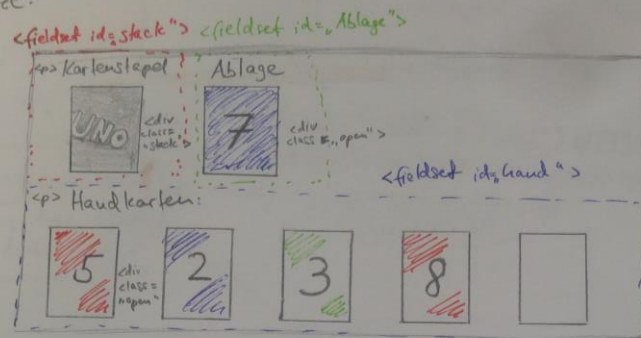 <fieldset id=„stack"> <fieldset id=„Ablage">
<p> Kartenstapel Ablage
UNO
<div
class=
„stack">
7
<div
class=„open">
<fieldset id=„hand">
<p> Handkarten:
5
<div
class=
„open"
2
3
8